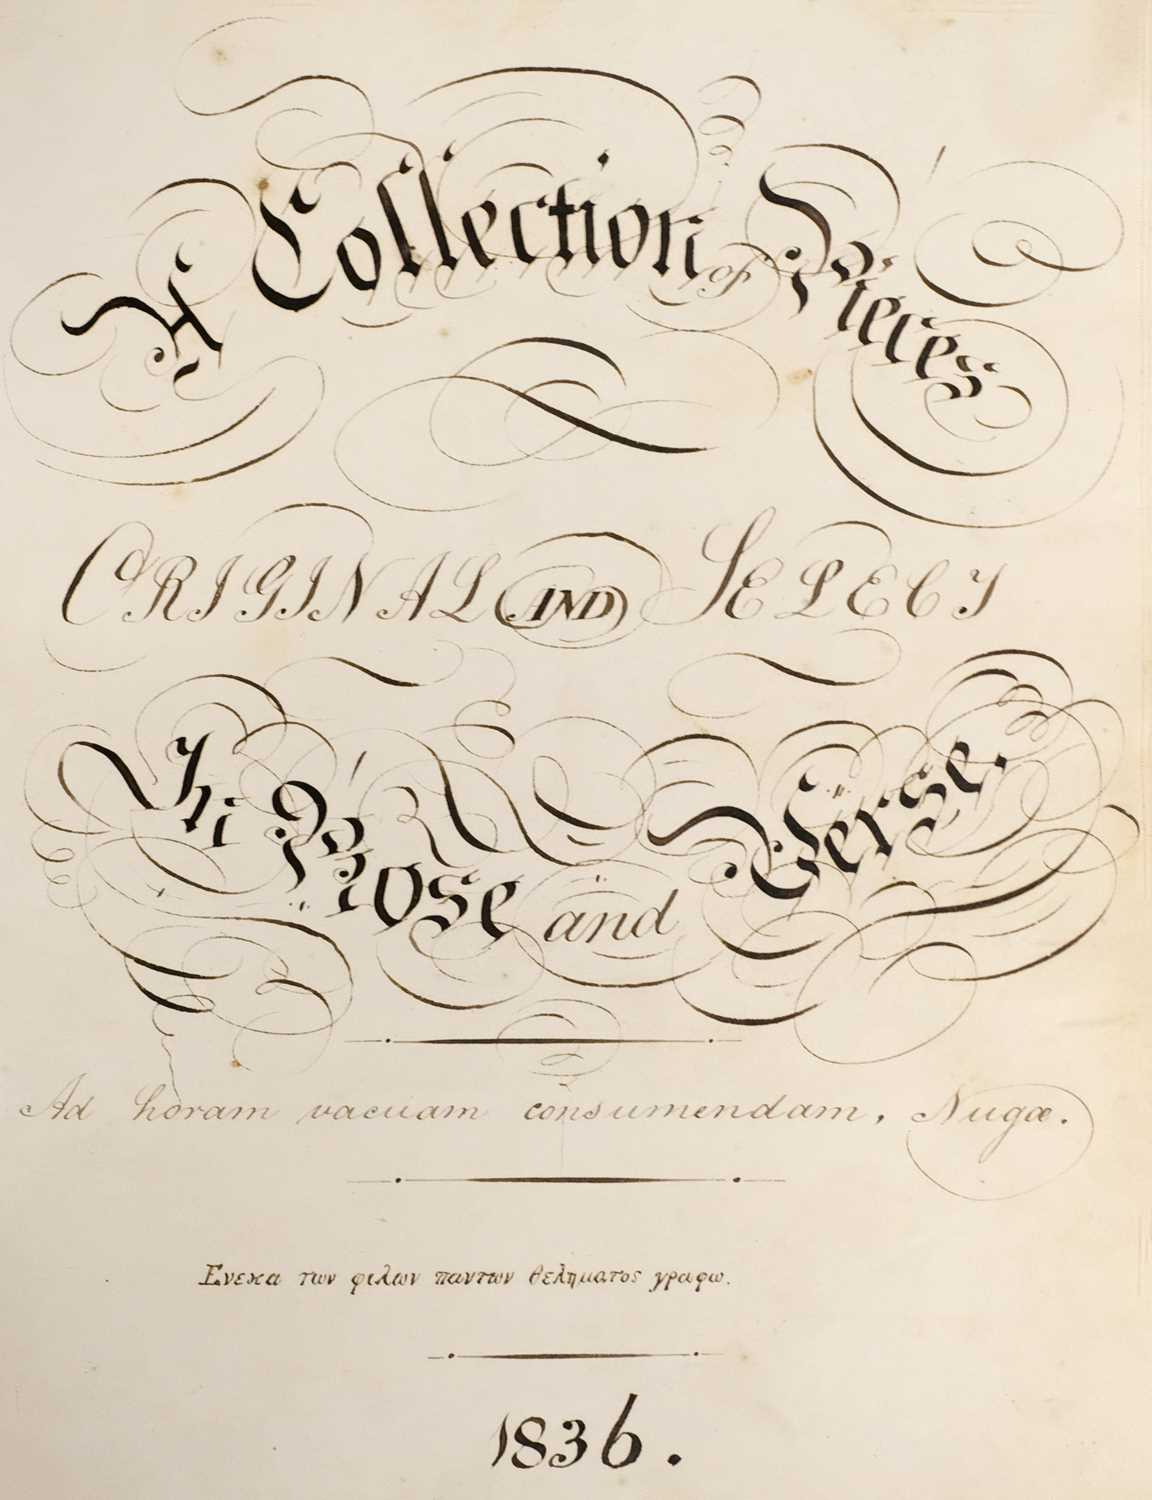 A Collection of Pieces
ORIGINAL AND SELECT
In Prose and Verse.
Ad horam vacuam consumendam, Nugæ.
Ενεκα των φιλων παντων θεληματος γραφω.
1836.